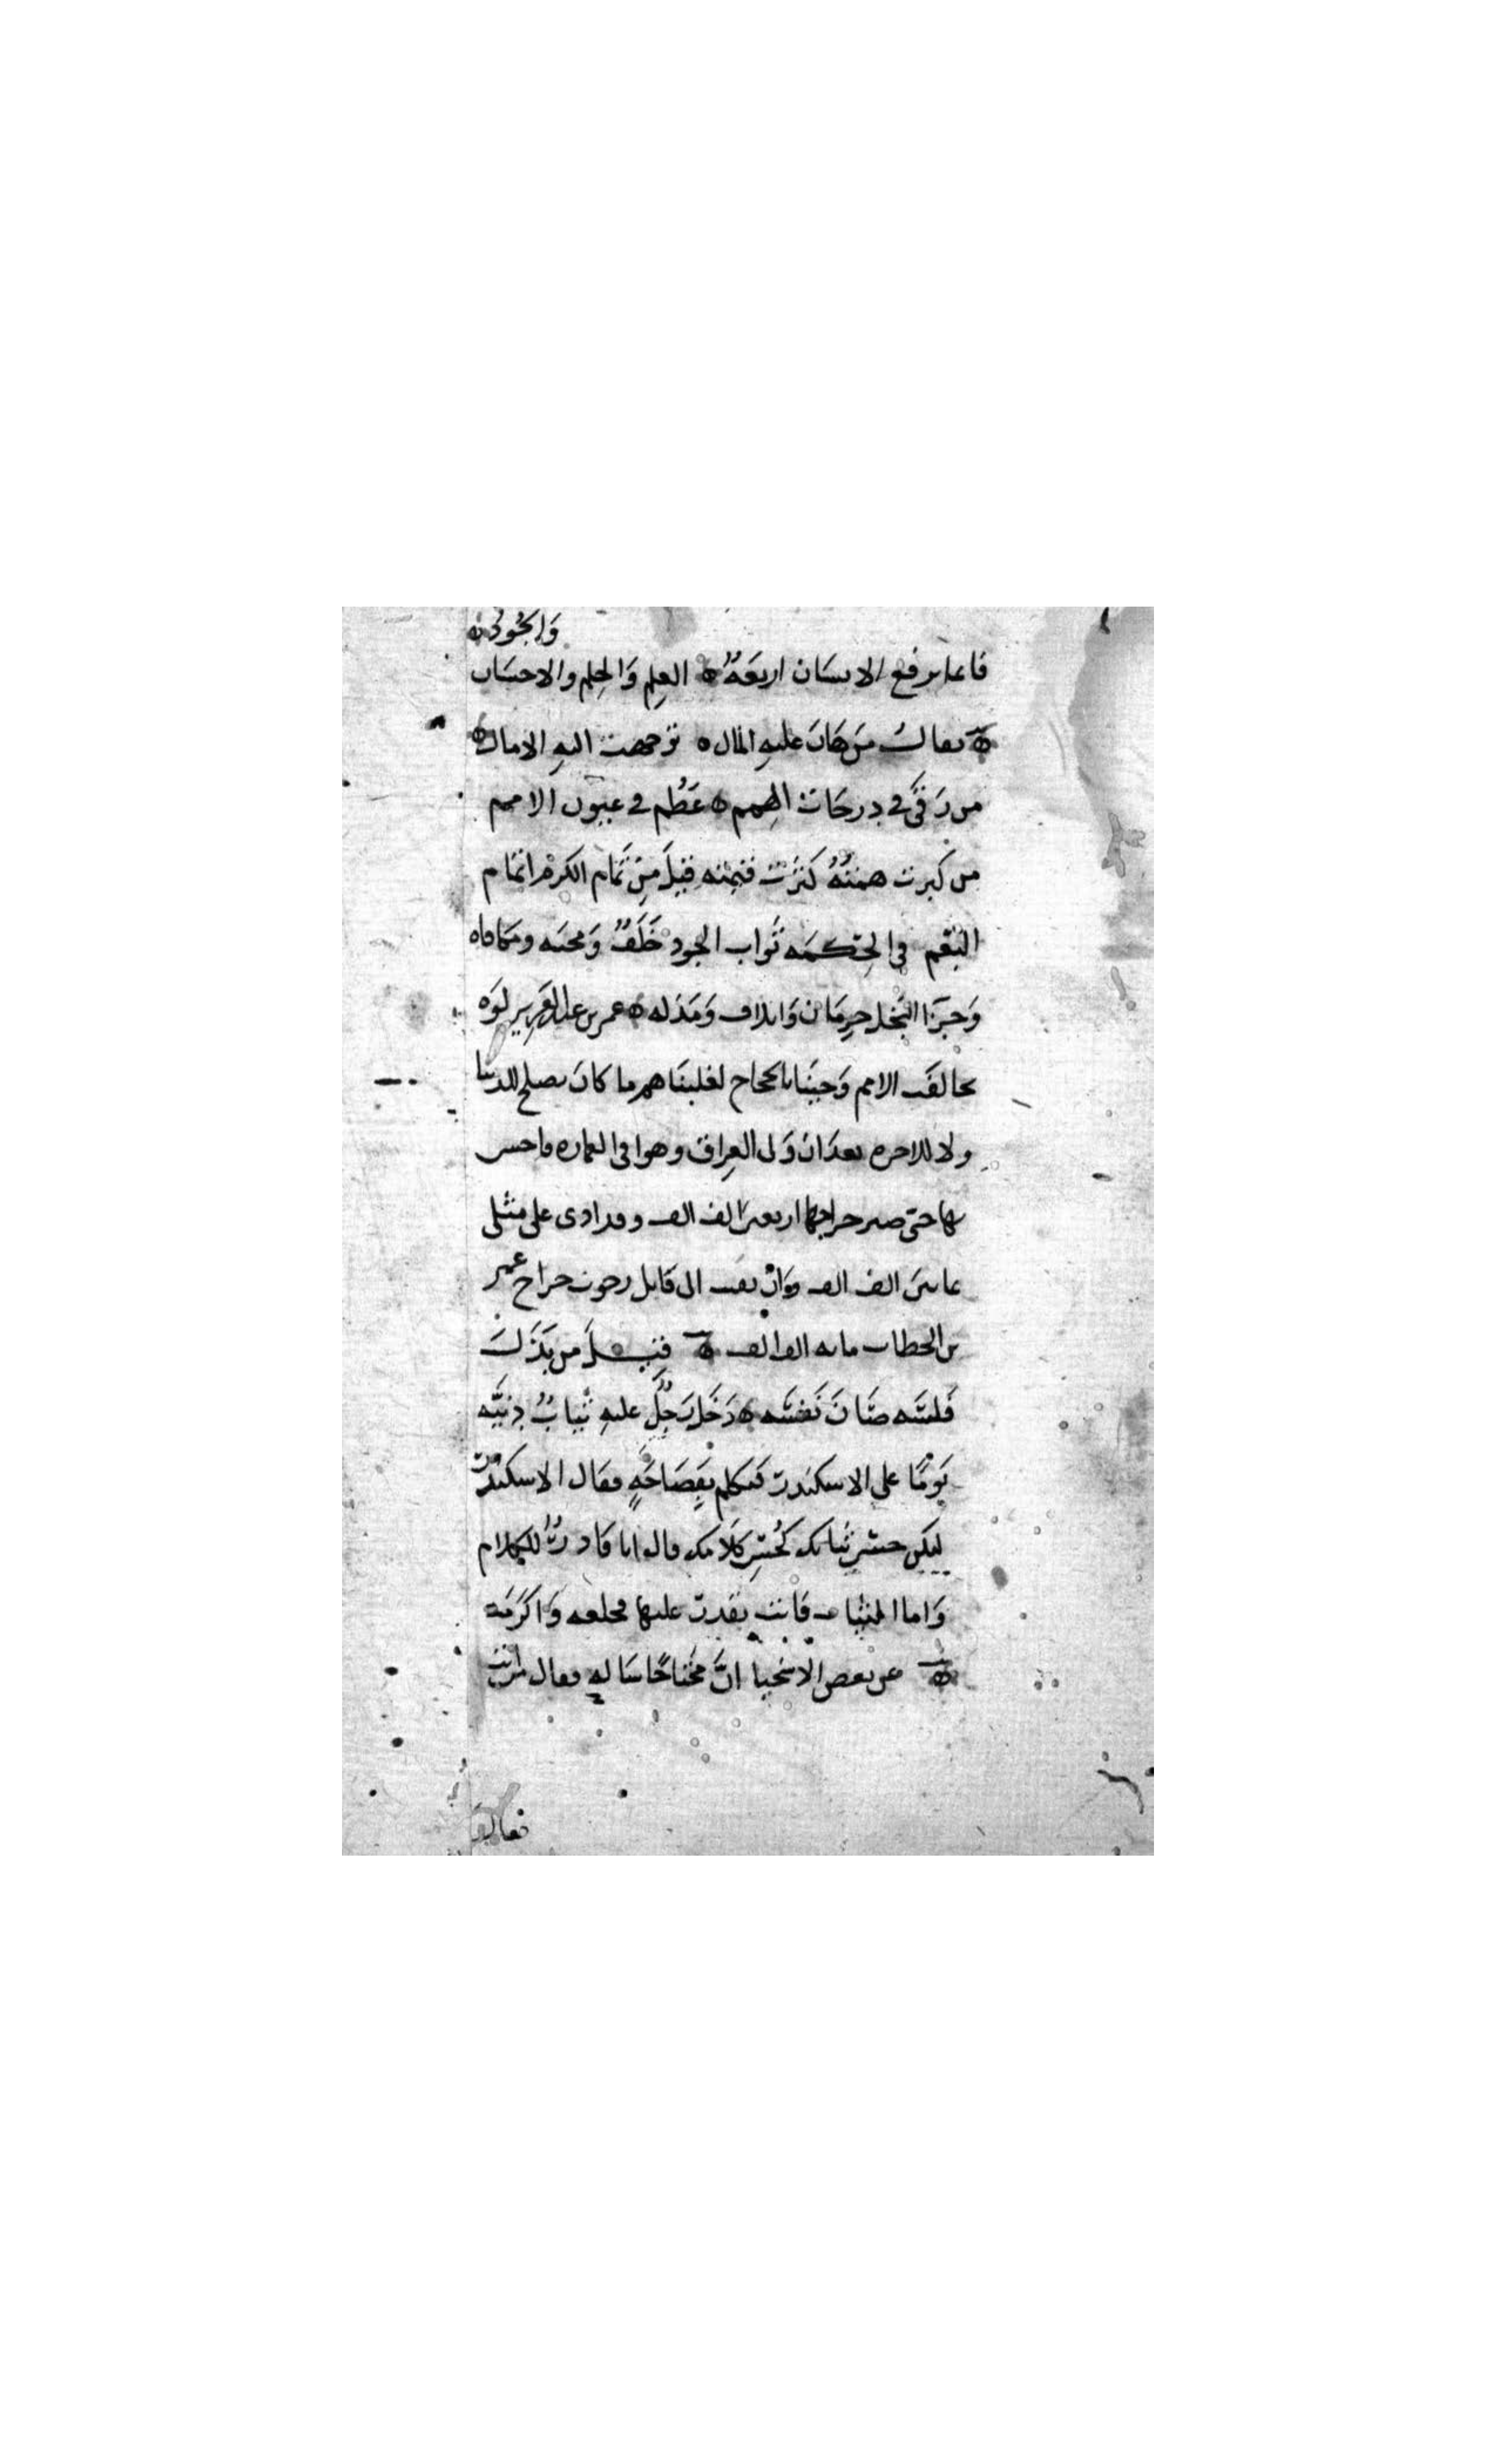 والجود
فاعما يرفع الانسان اربعة العلم والحلم والاحسان
يقال من هان عليه المال توجهت اليه الامال
من رقي في درجات الهمم عظم في عيون الامم
من كبرت همته كثرت قيمته قيل من تمام الكرم اتمام
النعم في الحكمه ثواب الجود خلف ومحبه ومكافاه
وجزا البخل حرمان واتلاف ومذله عمر بن عبد العزيز لوه
تخالفت الامم وجينا بالحجاج لغلبناهم ما كان يصلح للدنيا
ولا للاخره بعد ان ولى العراق وهوا في العماره فاخس
بها حتى صير خراجها اربعين الف الف وقد ادى على مثلى
ثمانين الف الف وان بقيت الى قابل رجوت خراج عمر
بن الخطاب مايه الف الف قيل من بذل
فلسه صان نفسه دخل رجل عليه ثياب دنيه
يوما على الاسكندر فتكلم بفصاحة فقال الاسكندر
ليكن حسن ثيابك كحسن كلامك قال انا قادر للكلام
واما الثياب فانت تقدر عليها فخلعه واكرمه
عن بعض الاسخيا ان محتاجا ساله فقال من انت
فقال